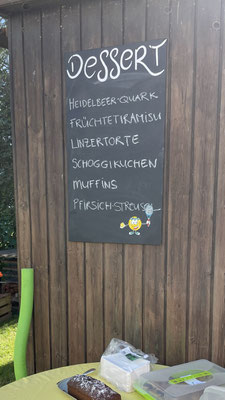 DESSERT
HEIDELBEER-QUARK
FRÜCHTETIRAMISU
LINZERTORTE
SCHOGGIKUCHEN
MUFFINS
PFIRSICH-STREUSEL